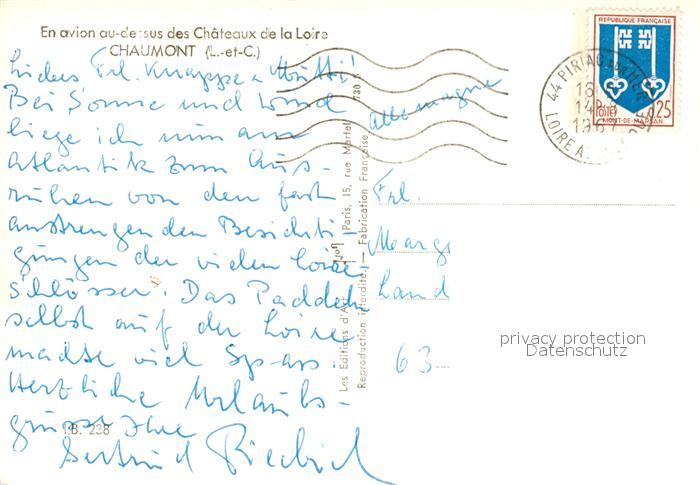 En avion au-dessus des Châteaux de la Loire
CHAUMONT (L.-et-C.)
Liebes Frl. Knappe u. Mutti!
Bei Sonne und Wind
liege ich nun am
Atlantik zum Aus-
ruhen von den fast
anstrengenden Besichti-
gungen der vielen Loire
Schlösser. Das Paddeln
selbst auf der Loire
machte viel Spass.
Herzliche Urlaubs-
grüsse Ihre
I.B. 238
Allemagne
Frl.
Marg
Land
63
Les Editions d'Art
Paris, 15, rue Martel
Reproduction interdite — Fabrication Française
REPUBLIQUE FRANÇAISE
POSTES
0,25
MONT-DE-MARSAN
44 PIRIAC
LOIRE
privacy protection
Datenschutz